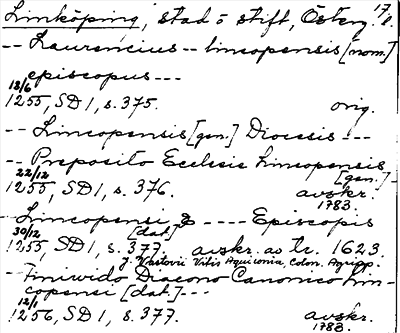 Linköping, stad o stift, Österg. l. 17.
-- Laurencius -- lincopensis [nom.]
episcopus ---
18/6
1255, SD 1, s. 375. orig.
-- Lincopensis [gen.] Diocesis ---
-- Preposito Ecclesie Lincopensis
[gen.] -
22/12
1255, SD 1, s. 376. avskr.
1783.
- Lincopensi ---- Episcopis
[dat.]
30/12
1255, SD 1, s. 377. avskr. av tr. 1623.
J. Vastovii Vitis Aquilonia, Colon. Agripp.
- Finivido Diacono Canonico Lin-
copensi [dat.] ---
12/1
1256, SD 1, s. 377. avskr.
1783.